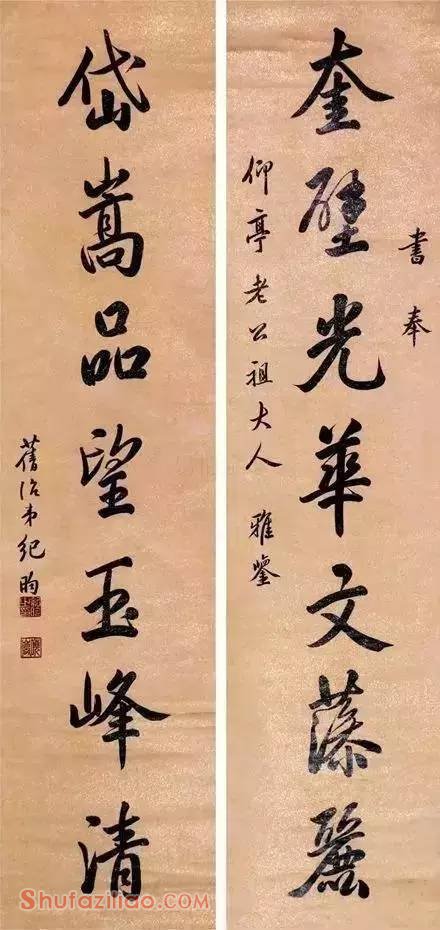 書奉
奎壁光華文藻麗
仰亭老公祖大人 雅鑒
岱嵩品望玉峰清
舊治弟紀昀
Shufaziliao.com